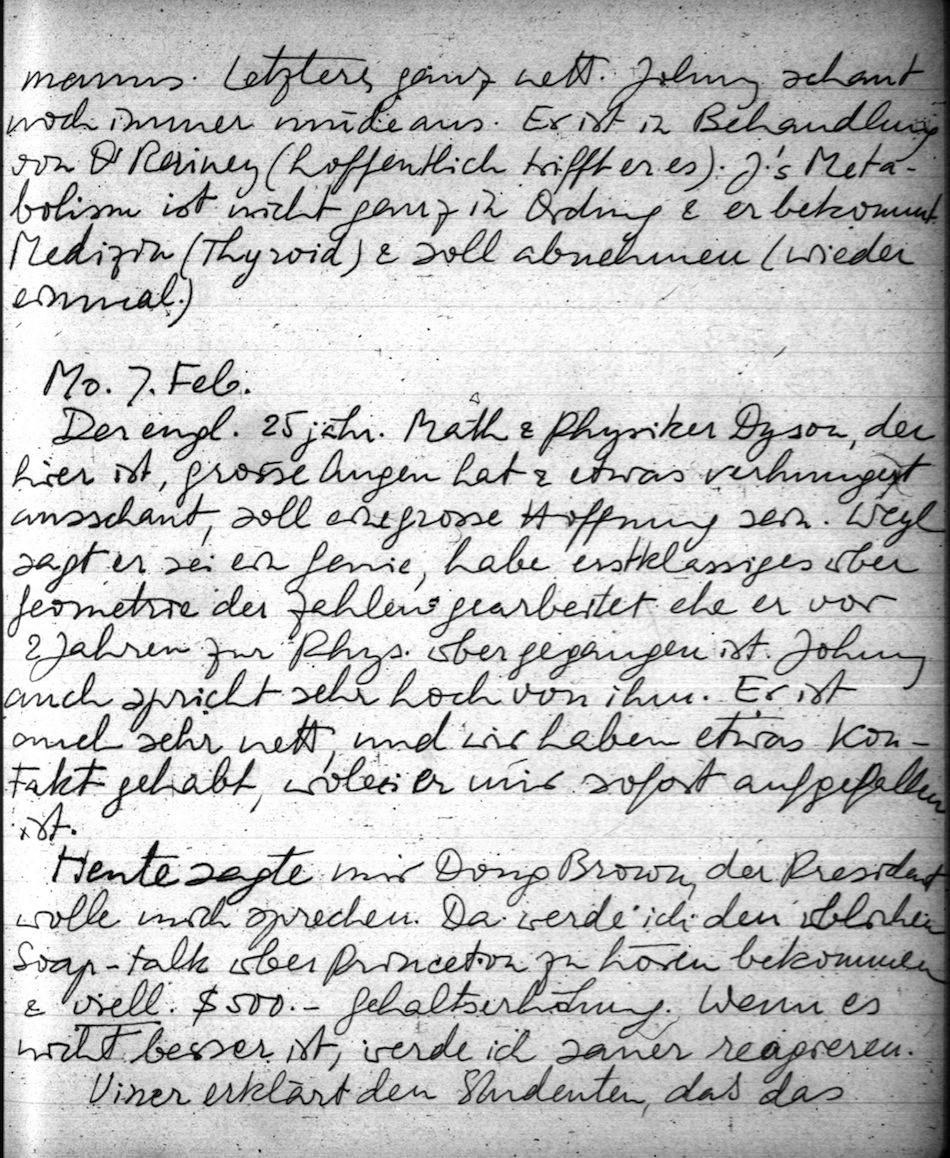 manns. Letztere ganz nett. Johnny schaut
noch immer müde aus. Er ist in Behandlung
von (hoffentlich trifft er es). J.'s Meta-
bolism ist nicht ganz in Ordnung & er bekommt
Medizin (Thyroid) & soll abnehmen (wieder
einmal.)
Mo. 7. Feb.
Der engl. 25 jähr. Math & Physiker Dyson, der
hier ist, grosse Augen hat & etwas verhungert
ausschaut, soll eine grosse Hoffnung sein. Weyl
sagt er sei ein Genie, habe erstklassiges über
Geometrie der Zahlen gearbeitet ehe er vor
2 Jahren zur Phys. übergegangen ist. Johnny
auch spricht sehr hoch von ihm. Er ist
auch sehr nett, und wir haben etwas Kon-
takt gehabt, wobei er mir sofort aufgefallen
ist.
Heute sagte mir Doug Brown, der President
wolle mich sprechen. Da werde ich den üblichen
Soap-talk über Princeton zu hören bekommen
& viell. $500.- Gehaltserhöhung. Wenn es
nicht besser ist, werde ich sauer reagieren.
Viner erklärt den Studenten, daß das